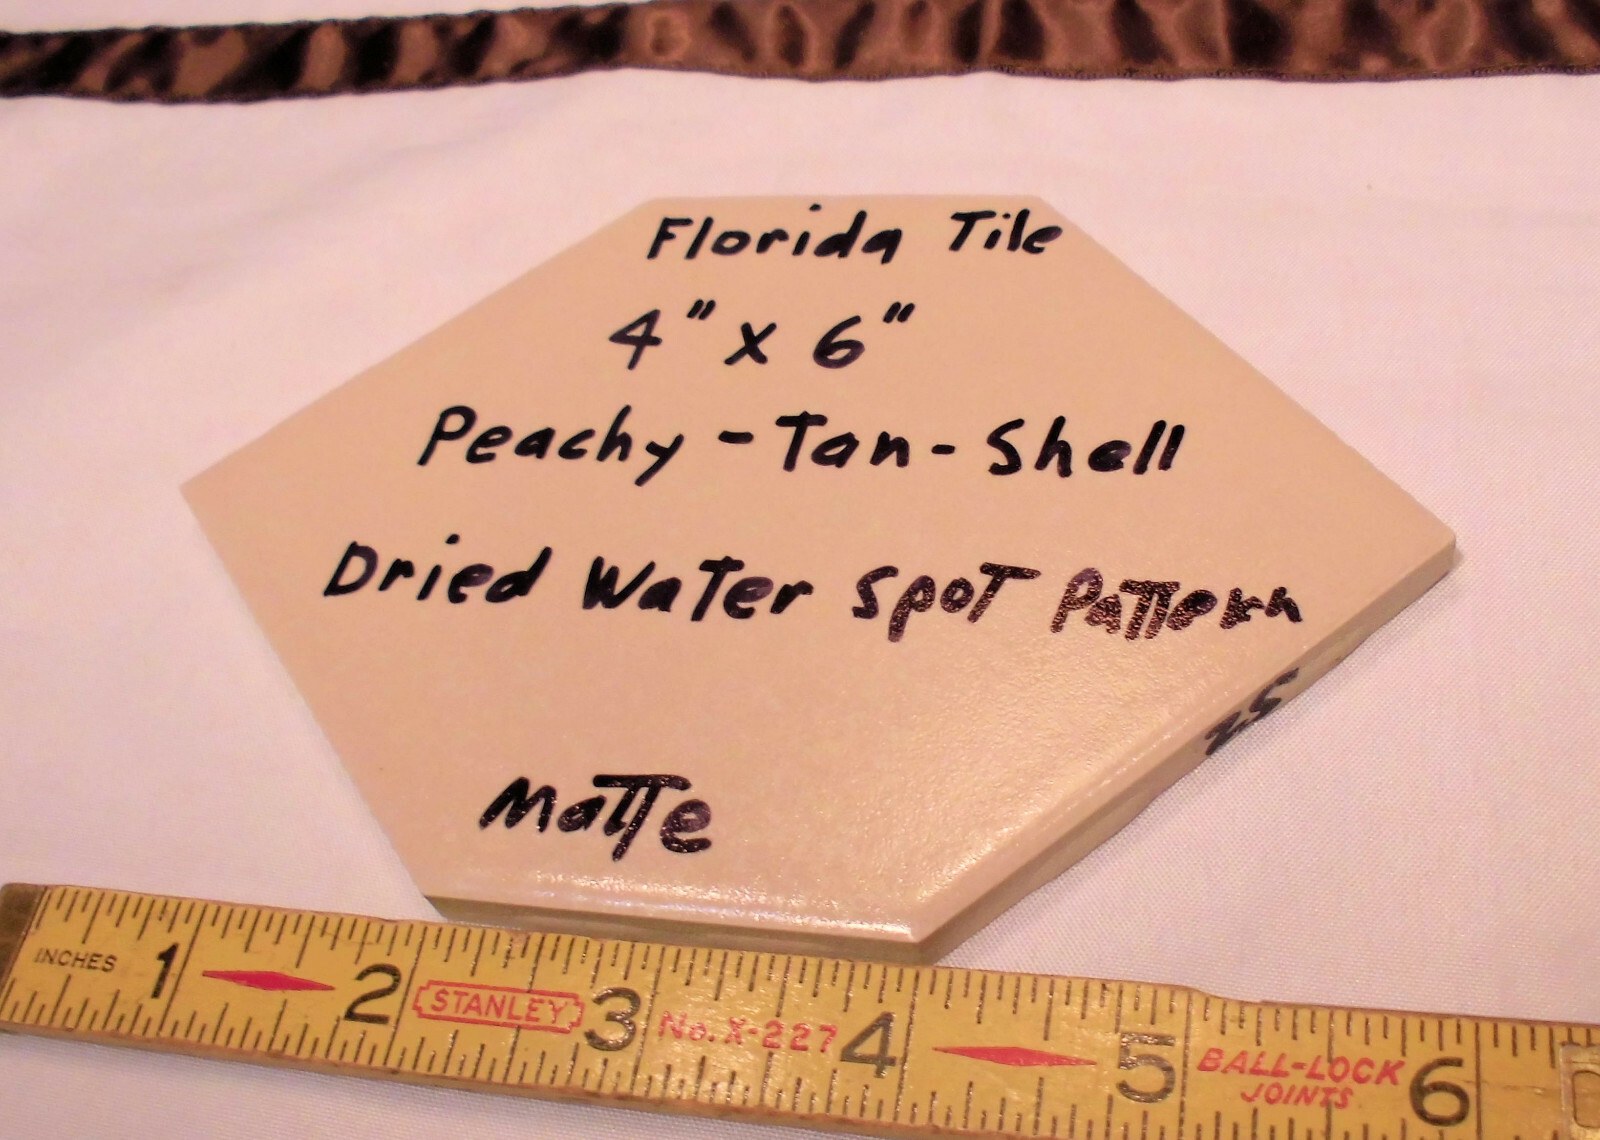 Florida Tile
4" x 6"
Peachy-Tan-Shell
Dried Water Spot Pattern
Matte
25
INCHES 1 2 STANLEY 3 No. X-227 4 5 BALL-LOCK JOINTS 6